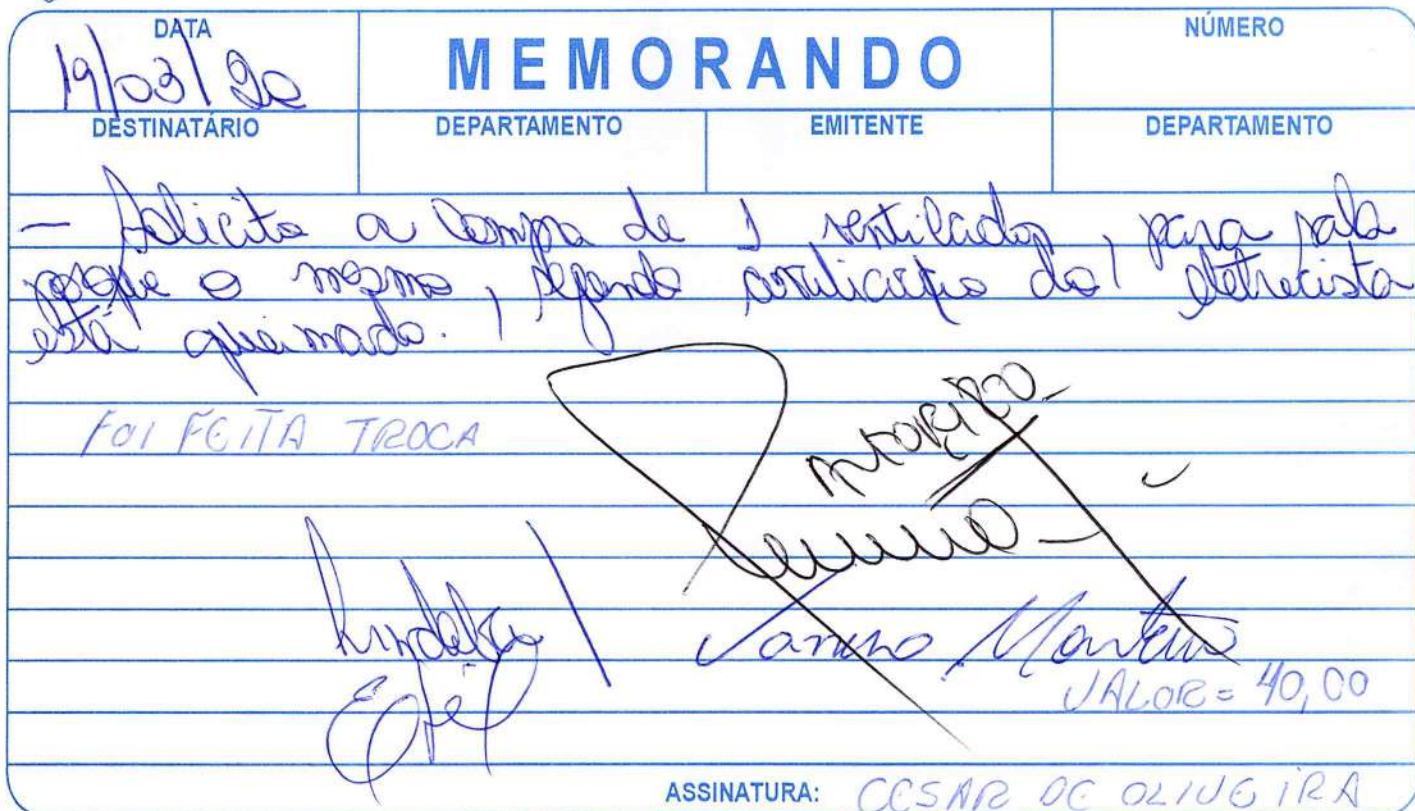 DATA
19/03/20
MEMORANDO
NÚMERO
DESTINATÁRIO DEPARTAMENTO EMITENTE DEPARTAMENTO
- Solicito a compra de 1 ventilador, para sala
porque o mesmo, segundo do eletrecista
está queimado.
FOI FEITA TROCA
AUTORIZADO
VALOR = 40,00
ASSINATURA: CESAR DE OLIVEIRA